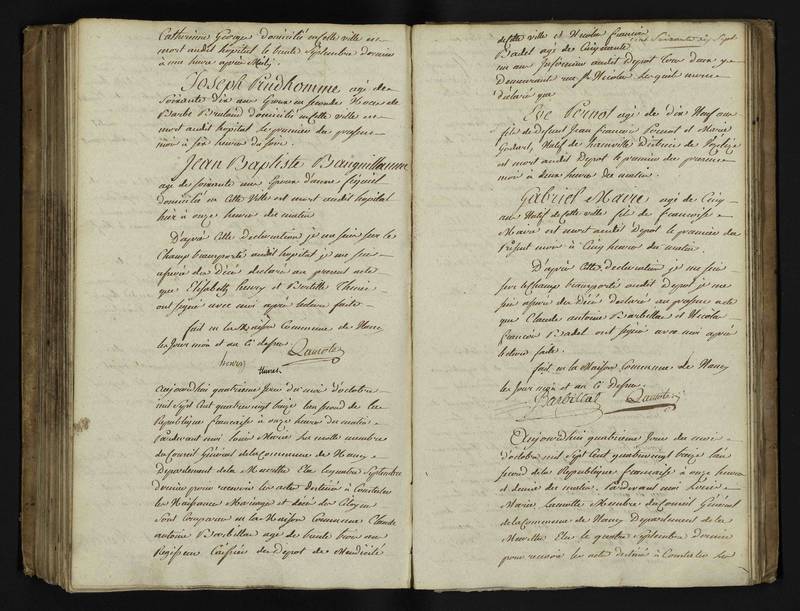 Catherinne George domiciliée en cette ville est
mort audit hôpital le trente Septembre dernier
à une heure après Midy.
Joseph Prudhomme agé de
Soixante dix ans Epoux en secondes Noces de
Barbe domicilié en cette ville est
mort audit hôpital le premier du présent
mois à six heures du soir.
Jean Baptiste
agé de soixante ans Epoux d'anne
domicilié en cette Ville est mort audit hôpital
hier à onze heures du matin
D'après cette déclaration je me suis sur le
Champ transporté audit hôpital je me suis
assuré du Décès déclaré au présent acte
que Elisabeth henry et
ont signé avec moi après lecture faite
fait en la Maison Commune de Nancy
les Jour mois et an Ci dessus.
henry Lamotte
Aujourd'hui quatrième Jour du mois d'octobre
mil Sept Cent quatre vingt treize l'an second de la
République française à onze heures du matin
Pardevant moi Louis Marie Lamotte membre
du Conseil Général de la Commune de Nancy
Département de la Meurthe Elu le quatre Septembre
dernier pour recevoir les actes destinés à Constater
les Naissances Mariages et décès des Citoyens
Sont comparus en la Maison Commune Claude
antoine Barbillat agé de trente trois ans
Régisseur Caissier du Dépot de Mendicité
cent Soixante dix Sept
de cette ville et Nicolas françois
Badel agé de Cinquante
un ans Infirmier audit dépot tous deux y
demeurant rue St Nicolas lesquels m'ont
déclaré que
Eve Pernot agé de dix Neuf ans
fil de défunt Jean francois Pernot et Marie
Godart, Natif de district de
est mort audit Dépot le premier du présent
mois à deux heures du matin.
Gabriel Maire agé de Cinq
ans Natif de cette ville fils de francoise
Maire est mort audit Dépot le premier du
Présent mois à Cinq heures du matin.
D'après cette déclaration je me suis
sur le champ transporté audit dépot je me
suis assuré du Décès déclaré au présent acte
que Claude antoine Barbillat et Nicolas
francois Badel ont signé avec moi après
lecture faite.
fait en la Maison Commune de Nancy
les Jour mois et an Ci dessus.
Barbillat Lamotte
Aujourd'hui quatrième Jour du mois
d'octobre mil Sept Cent quatre vingt treize l'an
second de la République française à onze heures
et demie du matin. Pardevant moi Louis
Marie Lamotte Membre du Conseil Général
de la Commune de Nancy Département de la
Meurthe Elu le quatre Septembre dernier
pour recevoir les actes destinés à Constater les